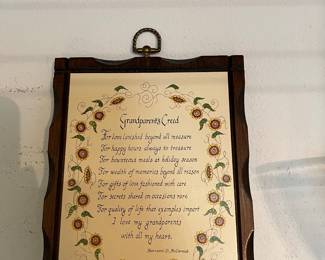 Grandparent's Creed
For love lavished beyond all measure
For happy hours always to treasure
For bounteous meals at holiday season
For wealth of memories beyond all reason
For gifts of love fashioned with care
For secrets shared on occasions rare
For quality of life that examples impart
I love my grandparents
with all my heart.
D. McCormick